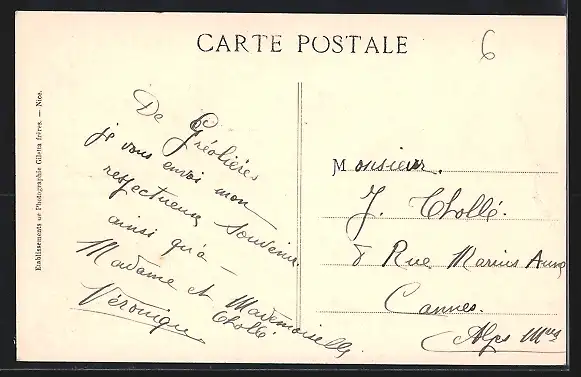 CARTE POSTALE
6
De Gréolières
je vous envoi mon
respectueux souvenir.
ainsi qu'à
Madame et Mademoiselle
Chollé.
Véronique
Monsieur.
J. Chollé.
8 Rue Marius Aune
Cannes.
Alpes Mmes
Etablissements de Photographie Giletta frères. — Nice.